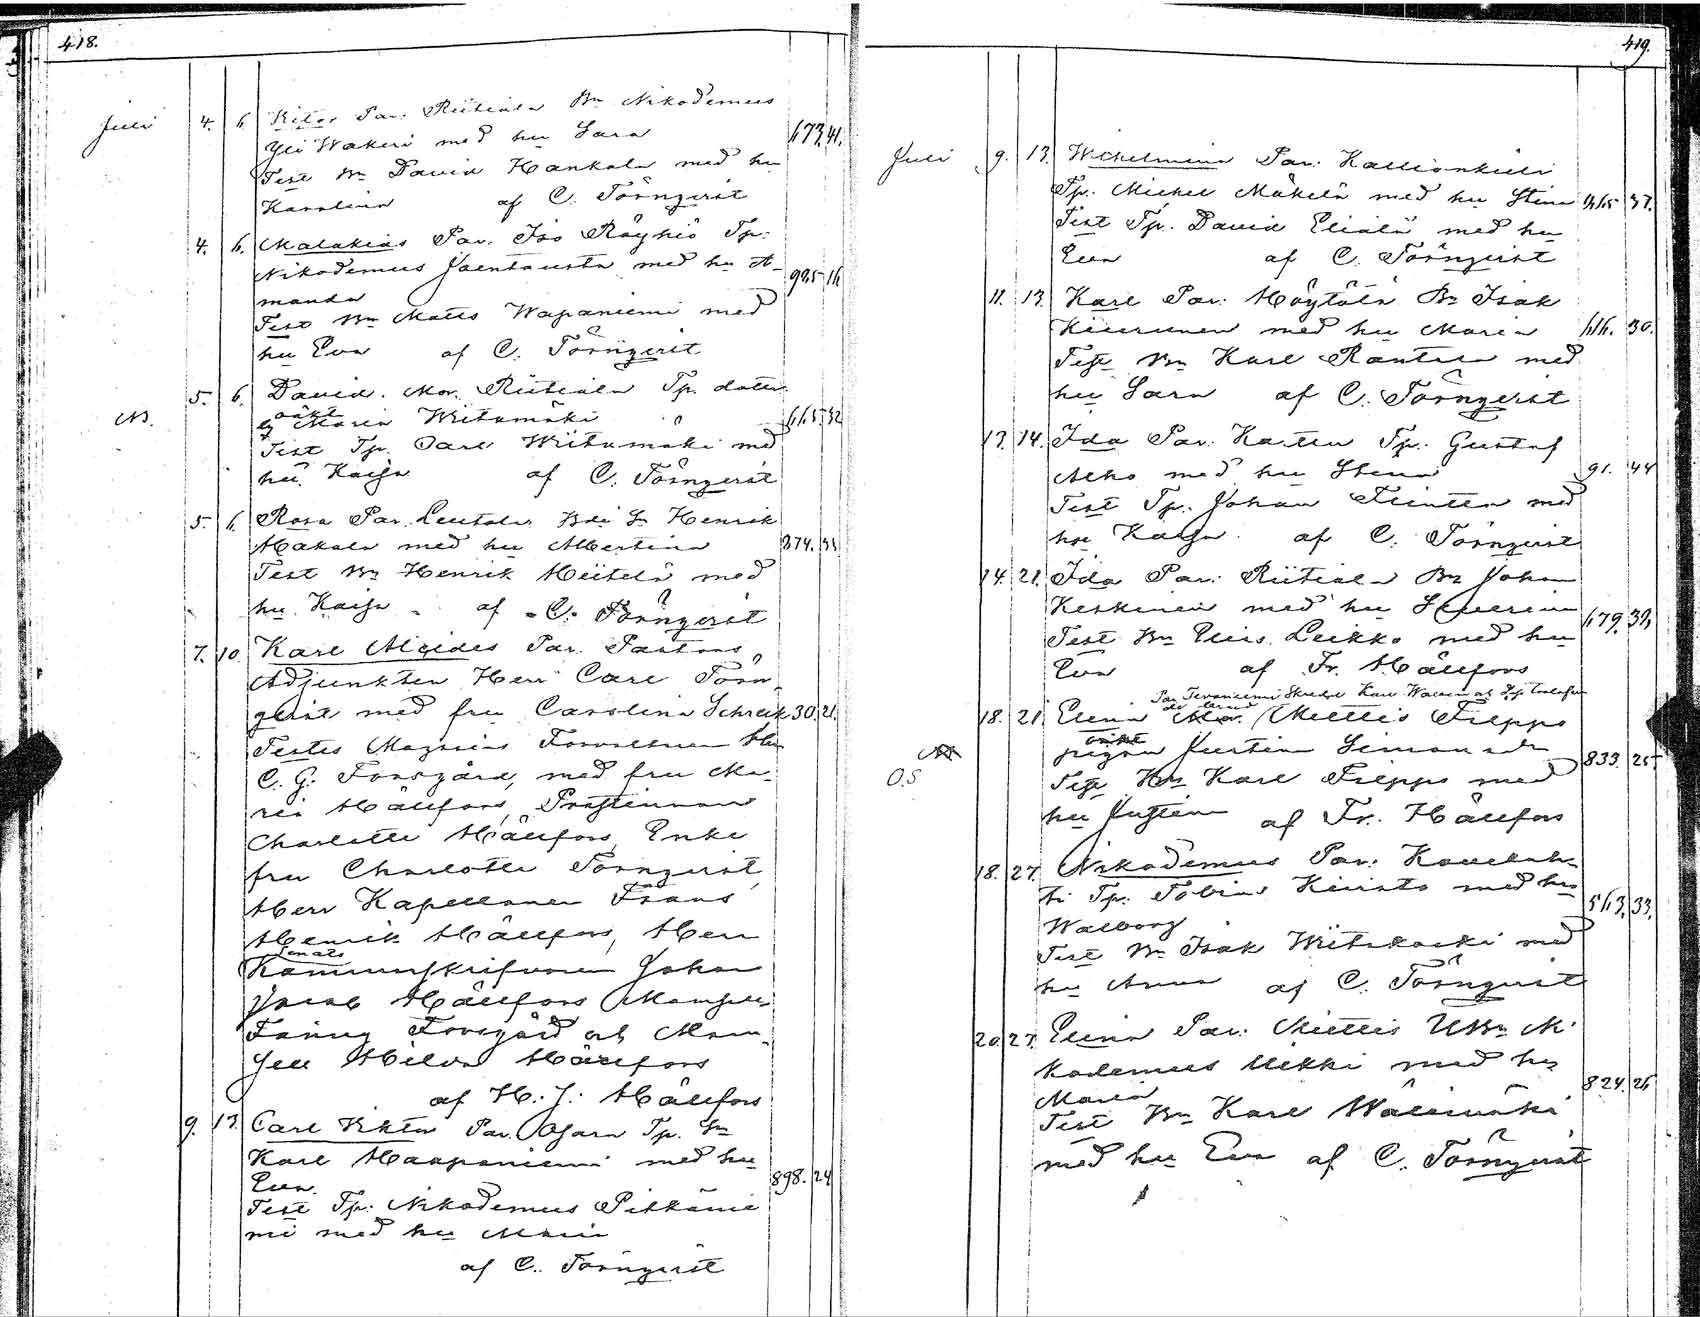 418.
Juli 4. 6. Par. Riitiala Bn Nikodemus
Yli Wakeri med hu Sara 673. 41.
Test Bn David Hankala med hu
Karolina af C. Törnqvist
4. 6. Malakias Par. Iso Röyhiö Tp.
Nikodemus Jaentausta med hu A- 995 16
manda
Test Bn Matts Wapaniemi med
hu Eva af C. Törnqvist
5. 6. David. Mor. Riitiala Tp. dotter
NB. Maria Wiitamäki 32
Test Tp. Carl Wiitamäki med
hu Kaisa af C. Törnqvist
5. 6. Rosa Par. Leutola Henrik
Makala med hu Albertina 374. 33
Test Bn Henrik med
hu Kaisa af C. Törnqvist
7. 10. Karl Alcides Par. Pastors
Adjunkten Herr Carl Törn-
qvist med fru Carolina Schreck 30. 21.
Testes Magasins Herr
C. G. Forsgård, med fru Ma-
ria Hällfors, Prostinnan
Charlotte Hällfors, Enke
fru Charlotte Törnqvist,
Herr Kapellanen Frans
Henrik Hällfors, Herr
Senats
Kammarskrifvaren Johan
Jacob Hällfors Mamsell
Fanny Forsgård och Mam-
sell Hilda Hällfors
af H. J. Hällfors
9. 13. Carl Viktor Par. Ojara Tp. Sn
Karl Haapaniemi med hu
Eva. 898. 24
Test Tp. Nikodemus Pitkänie
mi med hu Maria
af C. Törnqvist
419.
Juli 9. 13. Wilhelmina Par. Kallionkieli
Tp. Michel Mäkelä med hu Stina 37.
Test Tp. David Elialä med hu
Eva af C. Törnqvist
11. 13. Karl Par. Höytölä Bn Isak
Kiurunen med hu Maria 616. 30.
Test Bn Karl Rantala med
hu Sara af C. Törnqvist
13. 14. Ida Par. Karttu Tp. Gustaf
Alho med hu Stina 91. 44
Test Tp. Johan med
hu Kaisa. af C. Törnqvist
14. 21. Ida Par. Riitiala Bn Johan
Keskinen med hu Severina 679. 39
Test Bn Elis Leikko med hu
Eva af Fr. Hällfors
Par Tervaniemi Skräd. Karl
18. 21. Elina Mor. Miettis Filppo
NB pigan Justina Simonsdr 833. 25
O.S Test Bn Karl Filppo med
hu Justina af Fr. Hällfors
18. 27. Nikodemus Par. Kovelah-
ti Tp. Tobias Kivisto med hu 563. 33.
Walborg
Test Bn Isak Wiitakoski med
hu Anna af C. Törnqvist
20. 27. Elina Par. Miettis Ni-
kodemus Mikki med hu
Maria 824. 26
Test Bn Karl Wälimäki
med hu Eva af C. Törnqvist